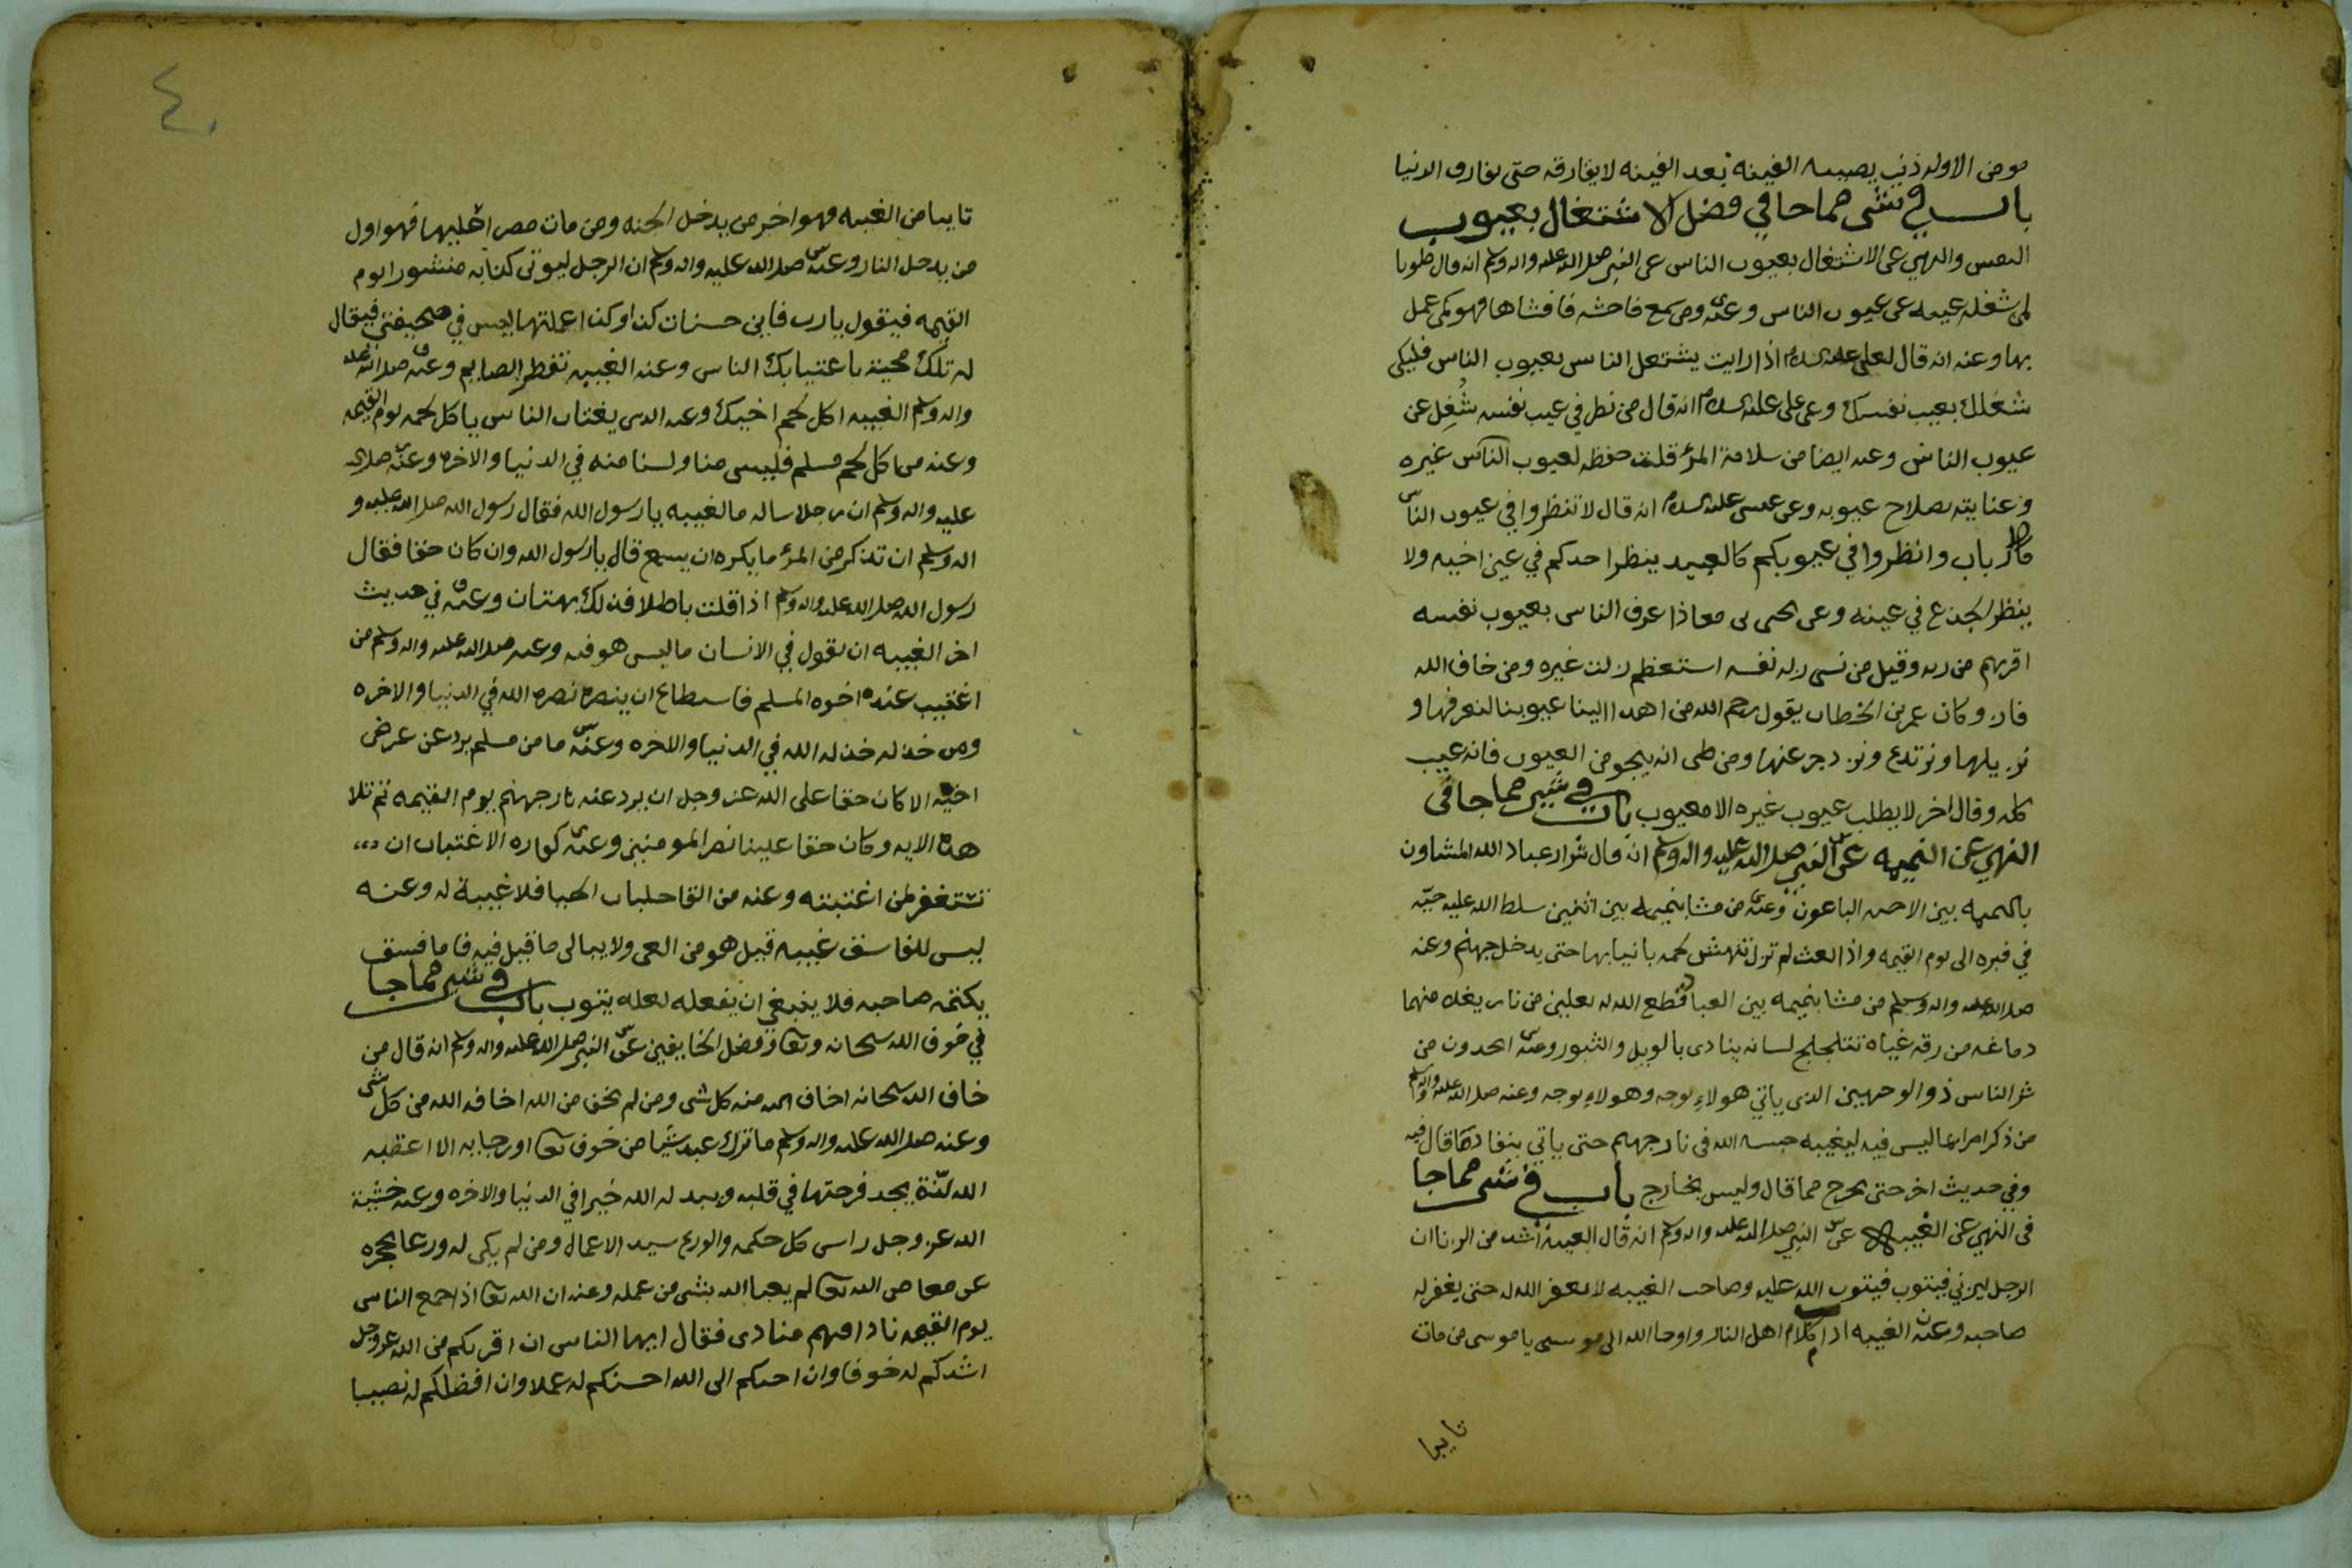 مومن الا وله ذنب يصيبه الفينه بعد الفينه لا يفارقه حتى يفارق الدنيا
باب في شي مما جا في فضل الاشتغال بعيوب
النفس والنهي عن الاشتغال بعيوب الناس عن النبي صلى الله عليه واله وسلم انه قال طوبا
لمن شغله عيبه عن عيوب الناس وعنه ومن سمع فاحشه فافشاها فهو كمن عمل
بها وعنه انه قال لعلي عليه السلام اذا رايت يشتغل الناس بعيوب الناس فليكن
شغلك بعيب نفسك وعن علي عليه السلام انه قال من نظر في عيب نفسه شُغِل عن
عيوب الناس وعنه ايضا من سلامة المرؤ قلت حفظه لعيوب الناس غيره
وعنايته بصلاح عيوبه وعن عيسى عليه السلام انه قال لا تنظروا في عيوب الناس
كالارباب وانظروا في عيوبكم كالعبيد ينظر احدكم في عين اخيه ولا
ينظر الجذع في عينه وعن يحيى بن معاذ اعرف الناس بعيوب نفسه
اقربهم من ربه وقيل من نسي زله نفسه استعظم زلت غيره ومن خاف الله
فاز وكان عمر بن الخطاب يقول رحم الله من اهدا الينا عيوبنا لنعرفها و
نزيلها ونرتدع ونزدجر عنها ومن ظن انه ينجو من العيوب فانه عيب
كله وقال اخر لا يطلب عيوب غيره الا معيوب باب في شي مما جا في
النهي عن النميمه عن النبي صلى الله عليه واله وسلم انه قال شرار عباد الله المشاون
بالنميمه بين الاحبه الباعون وعنه من مشا بنميمه بين اثنين سلط الله عليه حيّه
في قبره الى يوم القيمه واذا بعث لم تزل تنهش لحمه بانيابها حتى يدخل جهنم وعنه
صلى الله عليه واله وسلم من مشا بنميمه بين العباد قطع الله له نعلين من نار يغلا منهما
دماغه من رقه تتلجلج لسانه ينادى بالويل والثبور وعنه من
شر الناس ذو الوجهين الذي ياتي هولاء بوجه وهولاء بوجه وعنه صلى الله عليه واله وسلم
من ذكر امرا بما ليس فيه ليغيبه حبسه الله في نار جهنم حتى ياتي بنفاد ما قال فيه
وفي حديث اخر حتى يخرج مما قال وليس بخارج باب في شي مما جا
في النهي عن الغيبه عن النبي صلى الله عليه واله وسلم انه قال الغيبة اشد من الزنا ان
الرجل ليزني فيتوب فيتوب الله عليه وصاحب الغيبه لا يغفر الله له حتى يغفر له
صاحبه وعنه الغيبه ادام كلاب اهل النار واوحا الله الى موسى يا موسى من مات
تايبا
٤
تايبا من الغيبه فهو اخر من يدخل الجنه ومن مات مصرا عليها فهو اول
من يدخل النار وعنه صلى الله عليه واله وسلم ان الرجل ليوتى كتابه منشورا يوم
القيمه فيقول يا رب فاين حسنات كذا وكذا عملتها ليس في صحيفتي فيقال
له تلك محيت باغتيابك الناس وعنه الغيبه تفطر الصايم وعنه صلى الله عليه
واله وسلم الغيبه اكل لحم اخيك وعنه الذي يغتاب الناس ياكل لحمه يوم القيمه
وعنه من اكل لحم مسلم فليس منا ولسنا منه في الدنيا والاخره وعنه صلى الله
عليه واله وسلم ان رجلا ساله ما الغيبه يا رسول الله فقال رسول الله صلى الله عليه و
اله وسلم ان تذكر من المرؤ ما يكره ان يسمع قال يا رسول الله وان كان حقا فقال
رسول الله صلى الله عليه واله وسلم اذا قلت باطلا فذلك بهتان وعنه في حديث
اخر الغيبه ان تقول في الانسان ما ليس هو فيه وعنه صلى الله عليه واله وسلم من
اغتيب عنده اخوه المسلم فاستطاع ان ينصره نصره الله في الدنيا والاخره
ومن خذله خذله الله في الدنيا والاخره وعنه ما من مسلم يرد عن عرض
اخيه الا كان حقا على الله عز وجل ان يرد عنه نار جهنم يوم القيمه ثم تلا
هذه الايه وكان حقا علينا نصر المومنين وعنه كفاره الاغتياب ان
تستغفر لمن اغتبته وعنه من القا جلباب الحيا فلا غيبة له وعنه
ليس للفاسق غيبه قيل هو من العمى ولا يبالى ما قيل فيه فاما فسق
يكتمه صاحبه فلا ينبغي ان يفعله لعله يتوب باب في شي مما جا
في خوف الله سبحانه وتعالى وفضل الخايفين عن النبي صلى الله عليه واله وسلم انه قال من
خاف الله سبحانه اخاف الله منه كل شي ومن لم يخف من الله اخافه الله من كل شي
وعنه صلى الله عليه واله وسلم ما ترك عبد شيا من خوف الله تعالى او رجا به الا اعقبه
الله لذّة يجد فرحتها في قلبه ويبدله الله خيرا في الدنيا والاخره وعنه خشية
الله عز وجل راس كل حكمه والورع سيد الاعمال ومن لم يكن له ورعا يحجزه
عن معاصي الله تعالى لم يعبا الله بشي من عمله وعنه ان الله تعالى اذا جمع الناس
يوم القيمه نادا فيهم منادى فقال ايها الناس ان اقربكم من الله عز وجل
اشدكم له خوفا وان احبكم الى الله احسنكم له عملا وان افضلكم له نصيبا